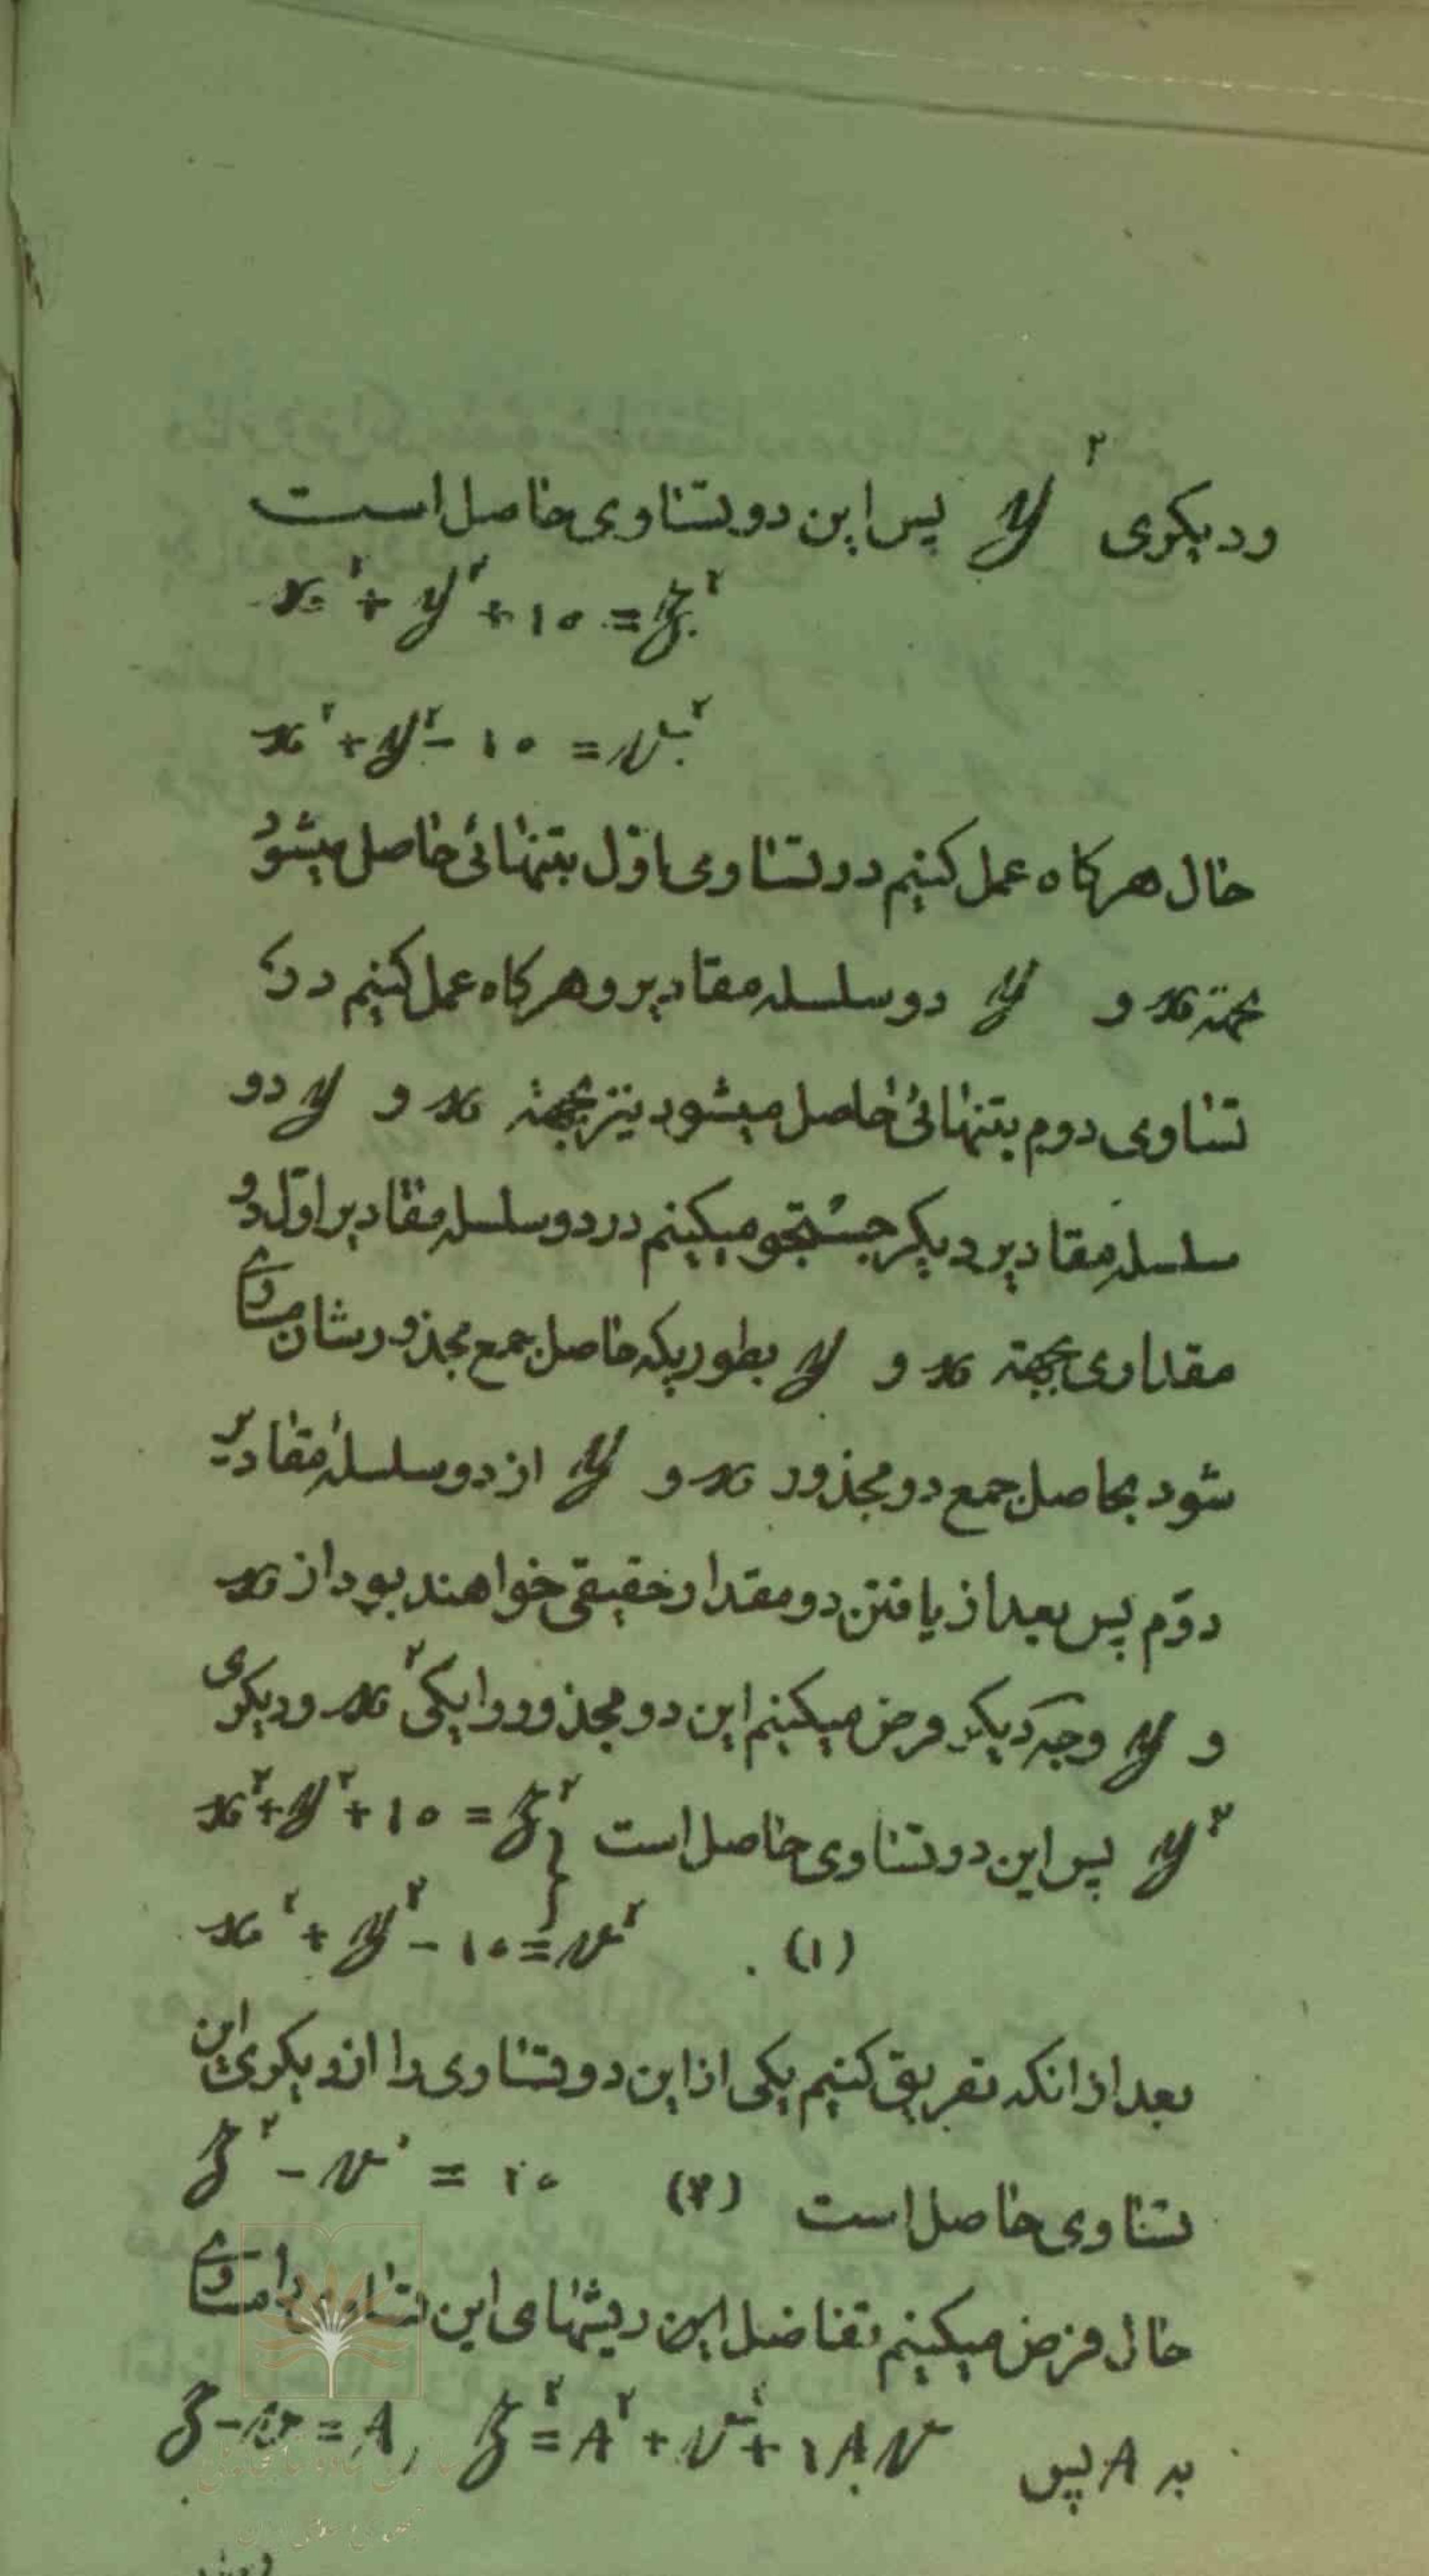 ودیکری y² پس این دو تساوی حاصل است
x² + y² + 10 = z²
x² + y² - 10 = v²
حال هرکاه عمل کنیم در تساوی اول بتنهائی حاصل میشود
بجهته x و y دو سلسله مقادیر و هرکاه عمل کنیم در
تساوی دوم بتنهائی حاصل میشود نیز بجهته x و y دو
سلسله مقادیر دیکر جستجو میکنیم در دو سلسله مقادیر اول دو
مقداری بجهته x و y بطوریکه حاصل جمع مجذورشان مساوی
شود بحاصل جمع دو مجذور x و y از دو سلسله مقادیر
دوّم پس بعد از یافتن دو مقدار حقیقی خواهند بود از x
و y وجه دیکر فرض میکنیم این دو مجذور را یکی x² و دیکری
y² پس این دو تساوی حاصل است x² + y² + 10 = z²
(۱) x² + y² - 10 = v²
بعد از انکه تفریق کنیم یکی از این دو تساوی را از دیکری این
تساوی حاصل است (۲) z² - v² = ۲0
حال فرض میکنیم تفاضل این ریشهای این تساوی را مساوی
به A پس z² = A² + v² + ۲Av , z - v = A